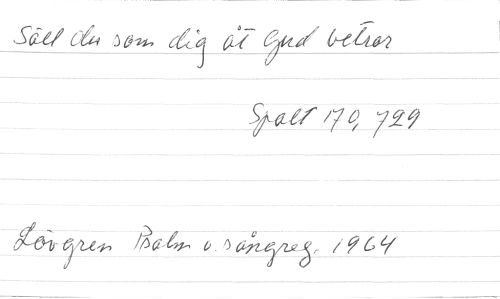 Säll du som dig åt Gud betror
Spalt 170, 729
Lövgren Psalm o. sångreg. 1964